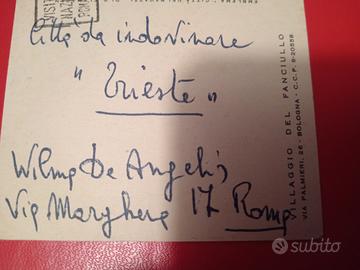 Città da indovinare
" Trieste "
Wilma De Angelis
Via Marghera 17 Roma
VILLAGGIO DEL FANCIULLO
VIA PALMIERI, 26 - BOLOGNA - C.C.P. 8-20558
subito